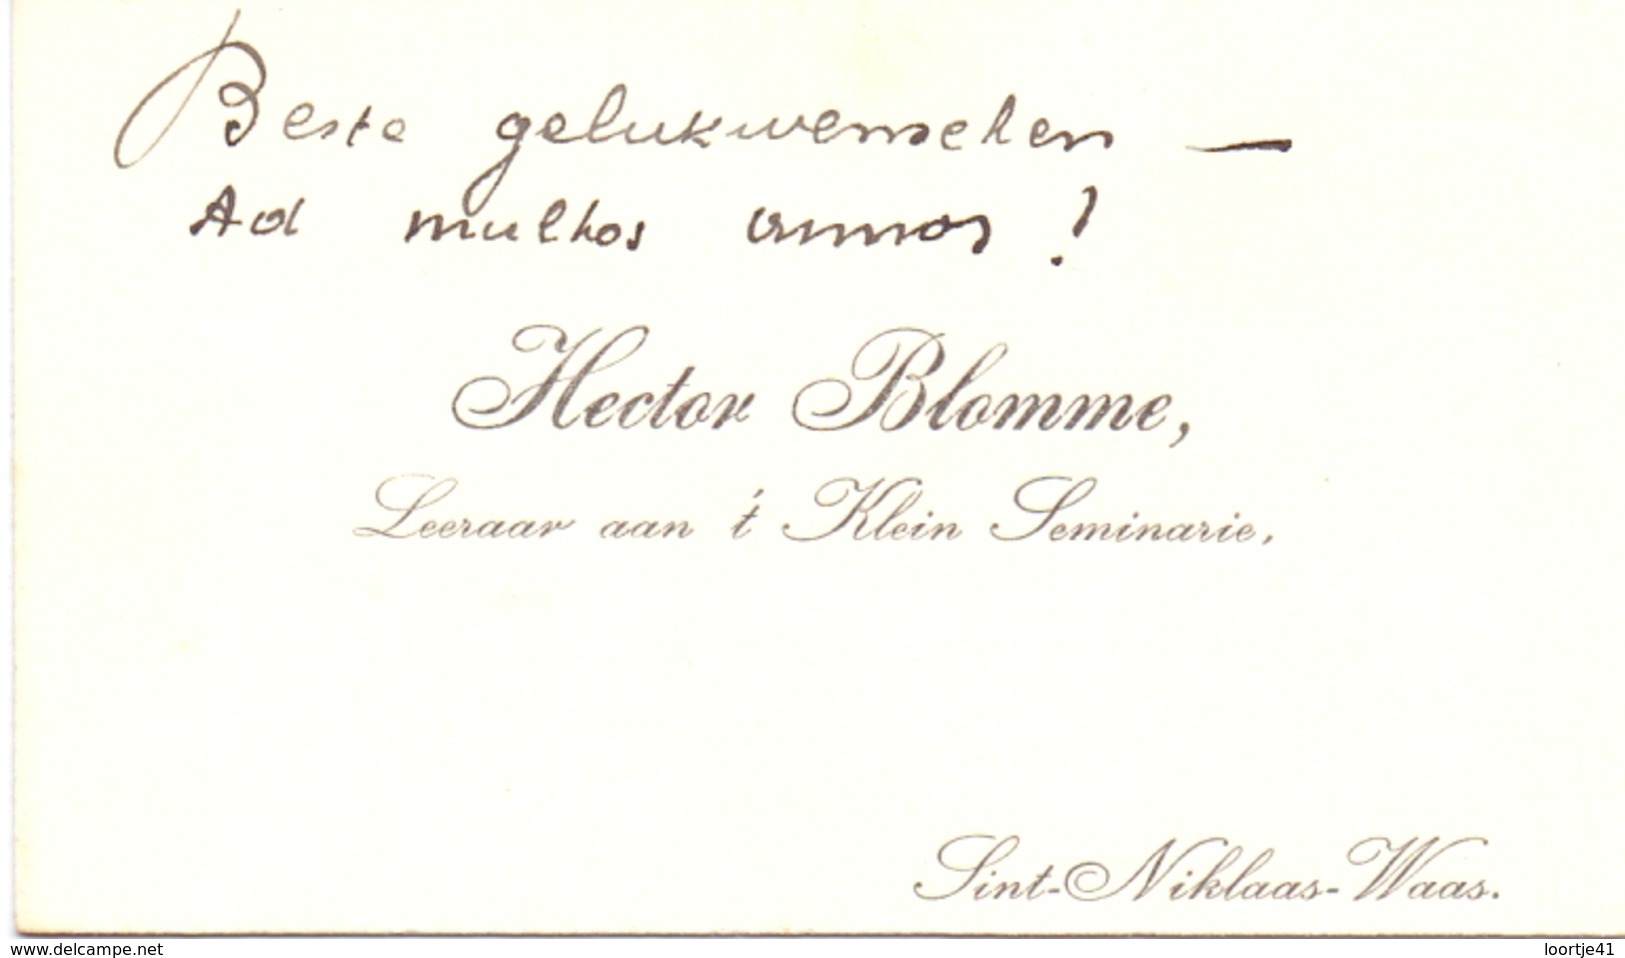 Beste gelukwenschen —
Ad multos annos !
Hector Blomme,
Leeraar aan 't Klein Seminarie,
Sint-Niklaas-Waas.
www.delcampe.net
loortje41